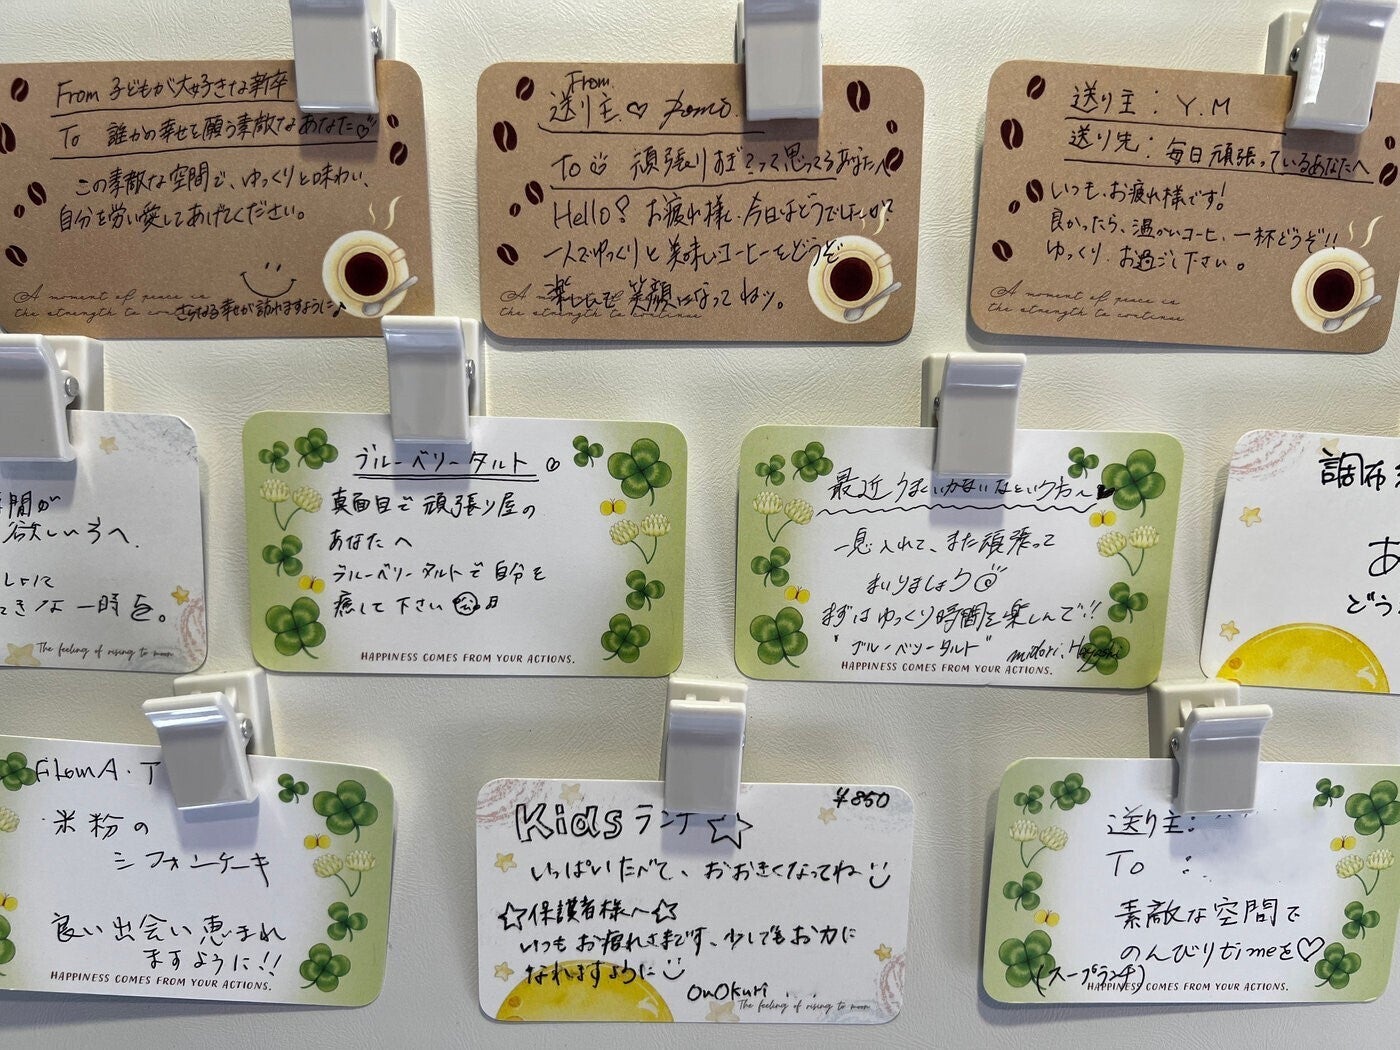 From 子どもが大好きな新卒
To 誰かの幸せを願う素敵なあなた♡
この素敵な空間で、ゆっくりと味わい、
自分を労い愛してあげてください。
A moment of peace is
the strength to
さらなる幸せが訪れますように♪
From
送り主♡
To 頑張りすぎ?って思ってるあなたへ
Hello! お疲れ様、今日はどうでしたか?
一人でゆっくりと美味しいコーヒーをどうぞ
楽しんで笑顔になってねッ。
the strength to continue
送り主：Y.M
送り先：毎日頑張っているあなたへ
いつも、お疲れ様です!
良かったら、温かいコーヒ、一杯どうぞ!!
ゆっくり、お過ごし下さい。
A moment of peace is
the strength to continue
間が
欲しい方へ
な一時を。
The feeling of rising to moon
ブルーベリータルト♡
真面目で頑張り屋の
あなたへ
ブルーベリータルトで自分を
癒して下さい
HAPPINESS COMES FROM YOUR ACTIONS.
最近うまくいかないなという方へ
一息入れて、また頑張って
まいりましょう
まずはゆっくり時間を楽しんで!!
"ブルーベリータルト"
midori.
HAPPINESS COMES FROM YOUR ACTIONS.
調布
あ
どう
From A.T
米粉の
シフォンケーキ
良い出会い恵まれ
ますように!!
HAPPINESS COMES FROM YOUR ACTIONS.
¥850
Kidsランチ☆
いっぱいたべて、おおきくなってね
☆保護者様へ☆
いつもお疲れさまです、少しでもお力に
なれますように
OuOkuri
The feeling of rising to moon
送り主：
To：
素敵な空間で
のんびりtimeを♡
(スープランチ)
HAPPINESS COMES FROM YOUR ACTIONS.